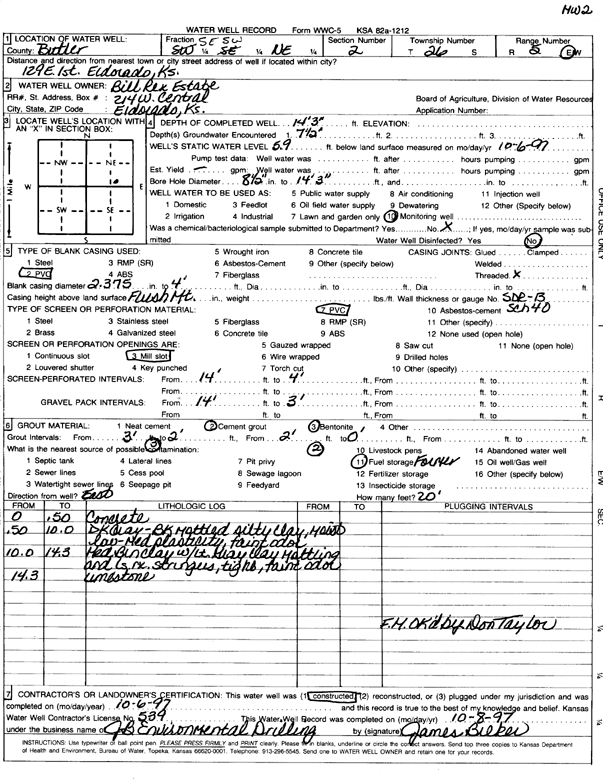 MW2
WATER WELL RECORD Form WWC-5 KSA 82a-1212
1 LOCATION OF WATER WELL: Fraction SE SW Section Number Township Number Range Number
County: Butler SW ¼ SE ¼ NE ¼ 2 T 26 S R 5 E/W
Distance and direction from nearest town or city street address of well if located within city?
129 E. 1st. Eldorado, Ks.
2 WATER WELL OWNER: Bill Rex Estate
RR#, St. Address, Box # : 214 W. Central Board of Agriculture, Division of Water Resources
City, State, ZIP Code : Eldorado, Ks. Application Number:
3 LOCATE WELL'S LOCATION WITH AN "X" IN SECTION BOX:
N
NW NE
W E
SW SE
S
1 Mile
4 DEPTH OF COMPLETED WELL 14'3" ft. ELEVATION:
Depth(s) Groundwater Encountered 1. 7½' ft. 2. ft. 3. ft.
WELL'S STATIC WATER LEVEL 5.9 ft. below land surface measured on mo/day/yr 10-6-97
Pump test data: Well water was ft. after hours pumping gpm
Est. Yield — gpm: Well water was ft. after hours pumping gpm
Bore Hole Diameter 8½ in. to 14'3" ft., and in. to ft.
WELL WATER TO BE USED AS: 5 Public water supply 8 Air conditioning 11 Injection well
1 Domestic 3 Feedlot 6 Oil field water supply 9 Dewatering 12 Other (Specify below)
2 Irrigation 4 Industrial 7 Lawn and garden only 10 Monitoring well
Was a chemical/bacteriological sample submitted to Department? Yes No X ; If yes, mo/day/yr sample was submitted
Water Well Disinfected? Yes No
5 TYPE OF BLANK CASING USED: 5 Wrought iron 8 Concrete tile CASING JOINTS: Glued Clamped
1 Steel 3 RMP (SR) 6 Asbestos-Cement 9 Other (specify below) Welded
2 PVC 4 ABS 7 Fiberglass Threaded X
Blank casing diameter 2.375 in. to 4' ft., Dia in. to ft., Dia in. to ft.
Casing height above land surface Flush Mt. in., weight lbs./ft. Wall thickness or gauge No. SDR-13
TYPE OF SCREEN OR PERFORATION MATERIAL: 7 PVC 10 Asbestos-cement Sch 40
1 Steel 3 Stainless steel 5 Fiberglass 8 RMP (SR) 11 Other (specify)
2 Brass 4 Galvanized steel 6 Concrete tile 9 ABS 12 None used (open hole)
SCREEN OR PERFORATION OPENINGS ARE: 5 Gauzed wrapped 8 Saw cut 11 None (open hole)
1 Continuous slot 3 Mill slot 6 Wire wrapped 9 Drilled holes
2 Louvered shutter 4 Key punched 7 Torch cut 10 Other (specify)
SCREEN-PERFORATED INTERVALS: From 14' ft. to 4' ft., From ft. to ft.
From ft. to ft., From ft. to ft.
GRAVEL PACK INTERVALS: From 14' ft. to 3' ft., From ft. to ft.
From ft. to ft., From ft. to ft.
6 GROUT MATERIAL: 1 Neat cement 2 Cement grout 3 Bentonite 4 Other
Grout Intervals: From 3' ft. to 2' ft., From 2' ft. to 0 ft., From ft. to ft.
3 2
What is the nearest source of possible contamination: 10 Livestock pens 14 Abandoned water well
1 Septic tank 4 Lateral lines 7 Pit privy 11 Fuel storage Former 15 Oil well/Gas well
2 Sewer lines 5 Cess pool 8 Sewage lagoon 12 Fertilizer storage 16 Other (specify below)
3 Watertight sewer lines 6 Seepage pit 9 Feedyard 13 Insecticide storage
Direction from well? East How many feet? 20'
FROM TO LITHOLOGIC LOG FROM TO PLUGGING INTERVALS
0 .50 Concrete
.50 10.0 DK Gray-BK Mottled silty clay, Moist
low-Med plasticity, faint odor
10.0 14.3 Med Brn clay w/ Lt. Gray Clay Mottling
and Gr. stringers, tight, faint odor
14.3 limestone
F.M. OK'd by Don Taylor
7 CONTRACTOR'S OR LANDOWNER'S CERTIFICATION: This water well was (1) constructed, (2) reconstructed, or (3) plugged under my jurisdiction and was
completed on (mo/day/year) 10-6-97 and this record is true to the best of my knowledge and belief. Kansas
Water Well Contractor's License No. 539 This Water Well Record was completed on (mo/day/yr) 10-8-97
under the business name of JB Environmental Drilling by (signature) James Bieker
INSTRUCTIONS: Use typewriter or ball point pen. PLEASE PRESS FIRMLY and PRINT clearly. Please fill in blanks, underline or circle the correct answers. Send top three copies to Kansas Department
of Health and Environment, Bureau of Water, Topeka, Kansas 66620-0001. Telephone: 913-296-5545. Send one to WATER WELL OWNER and retain one for your records.
OFFICE USE ONLY
T
R
E/W
SEC
¼
¼
¼